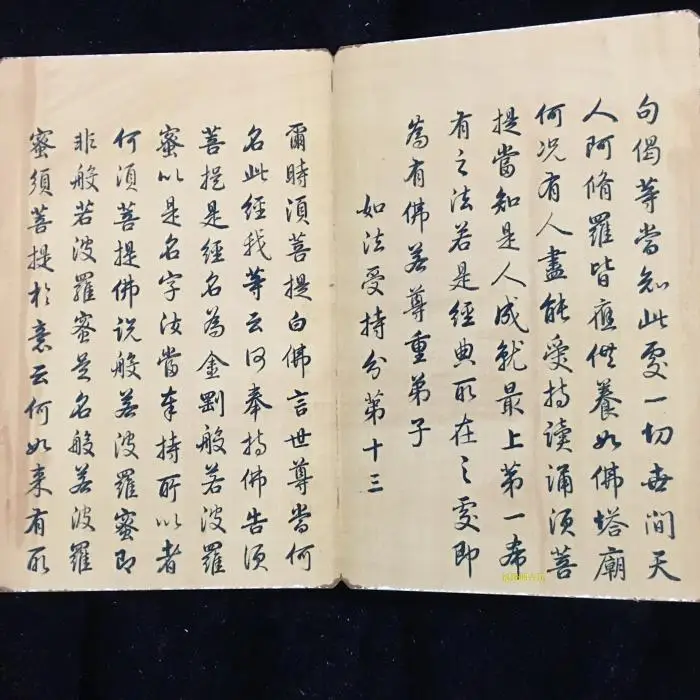 句偈等當知此處一切世間天
人阿脩羅皆應供養如佛塔廟
何况有人盡能受持讀誦須菩
提當知是人成就最上第一希
有之法若是經典所在之處即
為有佛若尊重弟子
如法受持分第十三
爾時須菩提白佛言世尊當何
名此經我等云何奉持佛告須
菩提是經名為金剛般若波羅
蜜以是名字汝當奉持所以者
何須菩提佛說般若波羅蜜即
非般若波羅蜜是名般若波羅
蜜須菩提於意云何如来有所